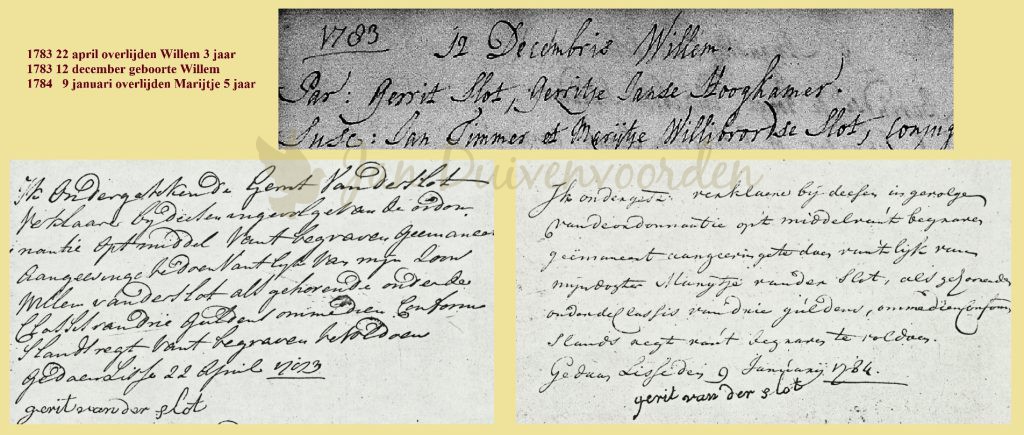 1783 22 april overlijden Willem 3 jaar
1783 12 december geboorte Willem
1784 9 januari overlijden Marijtje 5 jaar
1783 12 Decembris Willem.
Par: Gerrit Slot, Gerritje Janse Hooghkamer.
Susc: Jan Timmer et Marijtje Willibrordse Slot, coning
Jan Duivenvoorden
Ik Ondergetekende Gerrit Van der Slot
Verklaare bij diesen ingevolge van de ordon
nantie opt middel Vant begraven Geemaneer
Aangeevinge te doen Vant lijk Van mijn Zoon
Willem van der Slot als gehorende onder de
Classis van drie Guldens omme dien Conform
Slands regt vant begraven te voldoen
Gedaen Lisse 22 April 1783
gerit van der slot
Ik ondergesz: verklaere bij deesen ingevolge
van de ordonnantie opt middel vant begraven
geëmaneert aangeevinge te doen vant lijk van
mijn dogter Marijtje vander Slot, als gehoorende
onder de Classis van drie guldens, omme dien Conform
Slands regt vant begraven te voldoen.
Gedaan Lisse den 9 Januarij 1784.
gerit van der slot